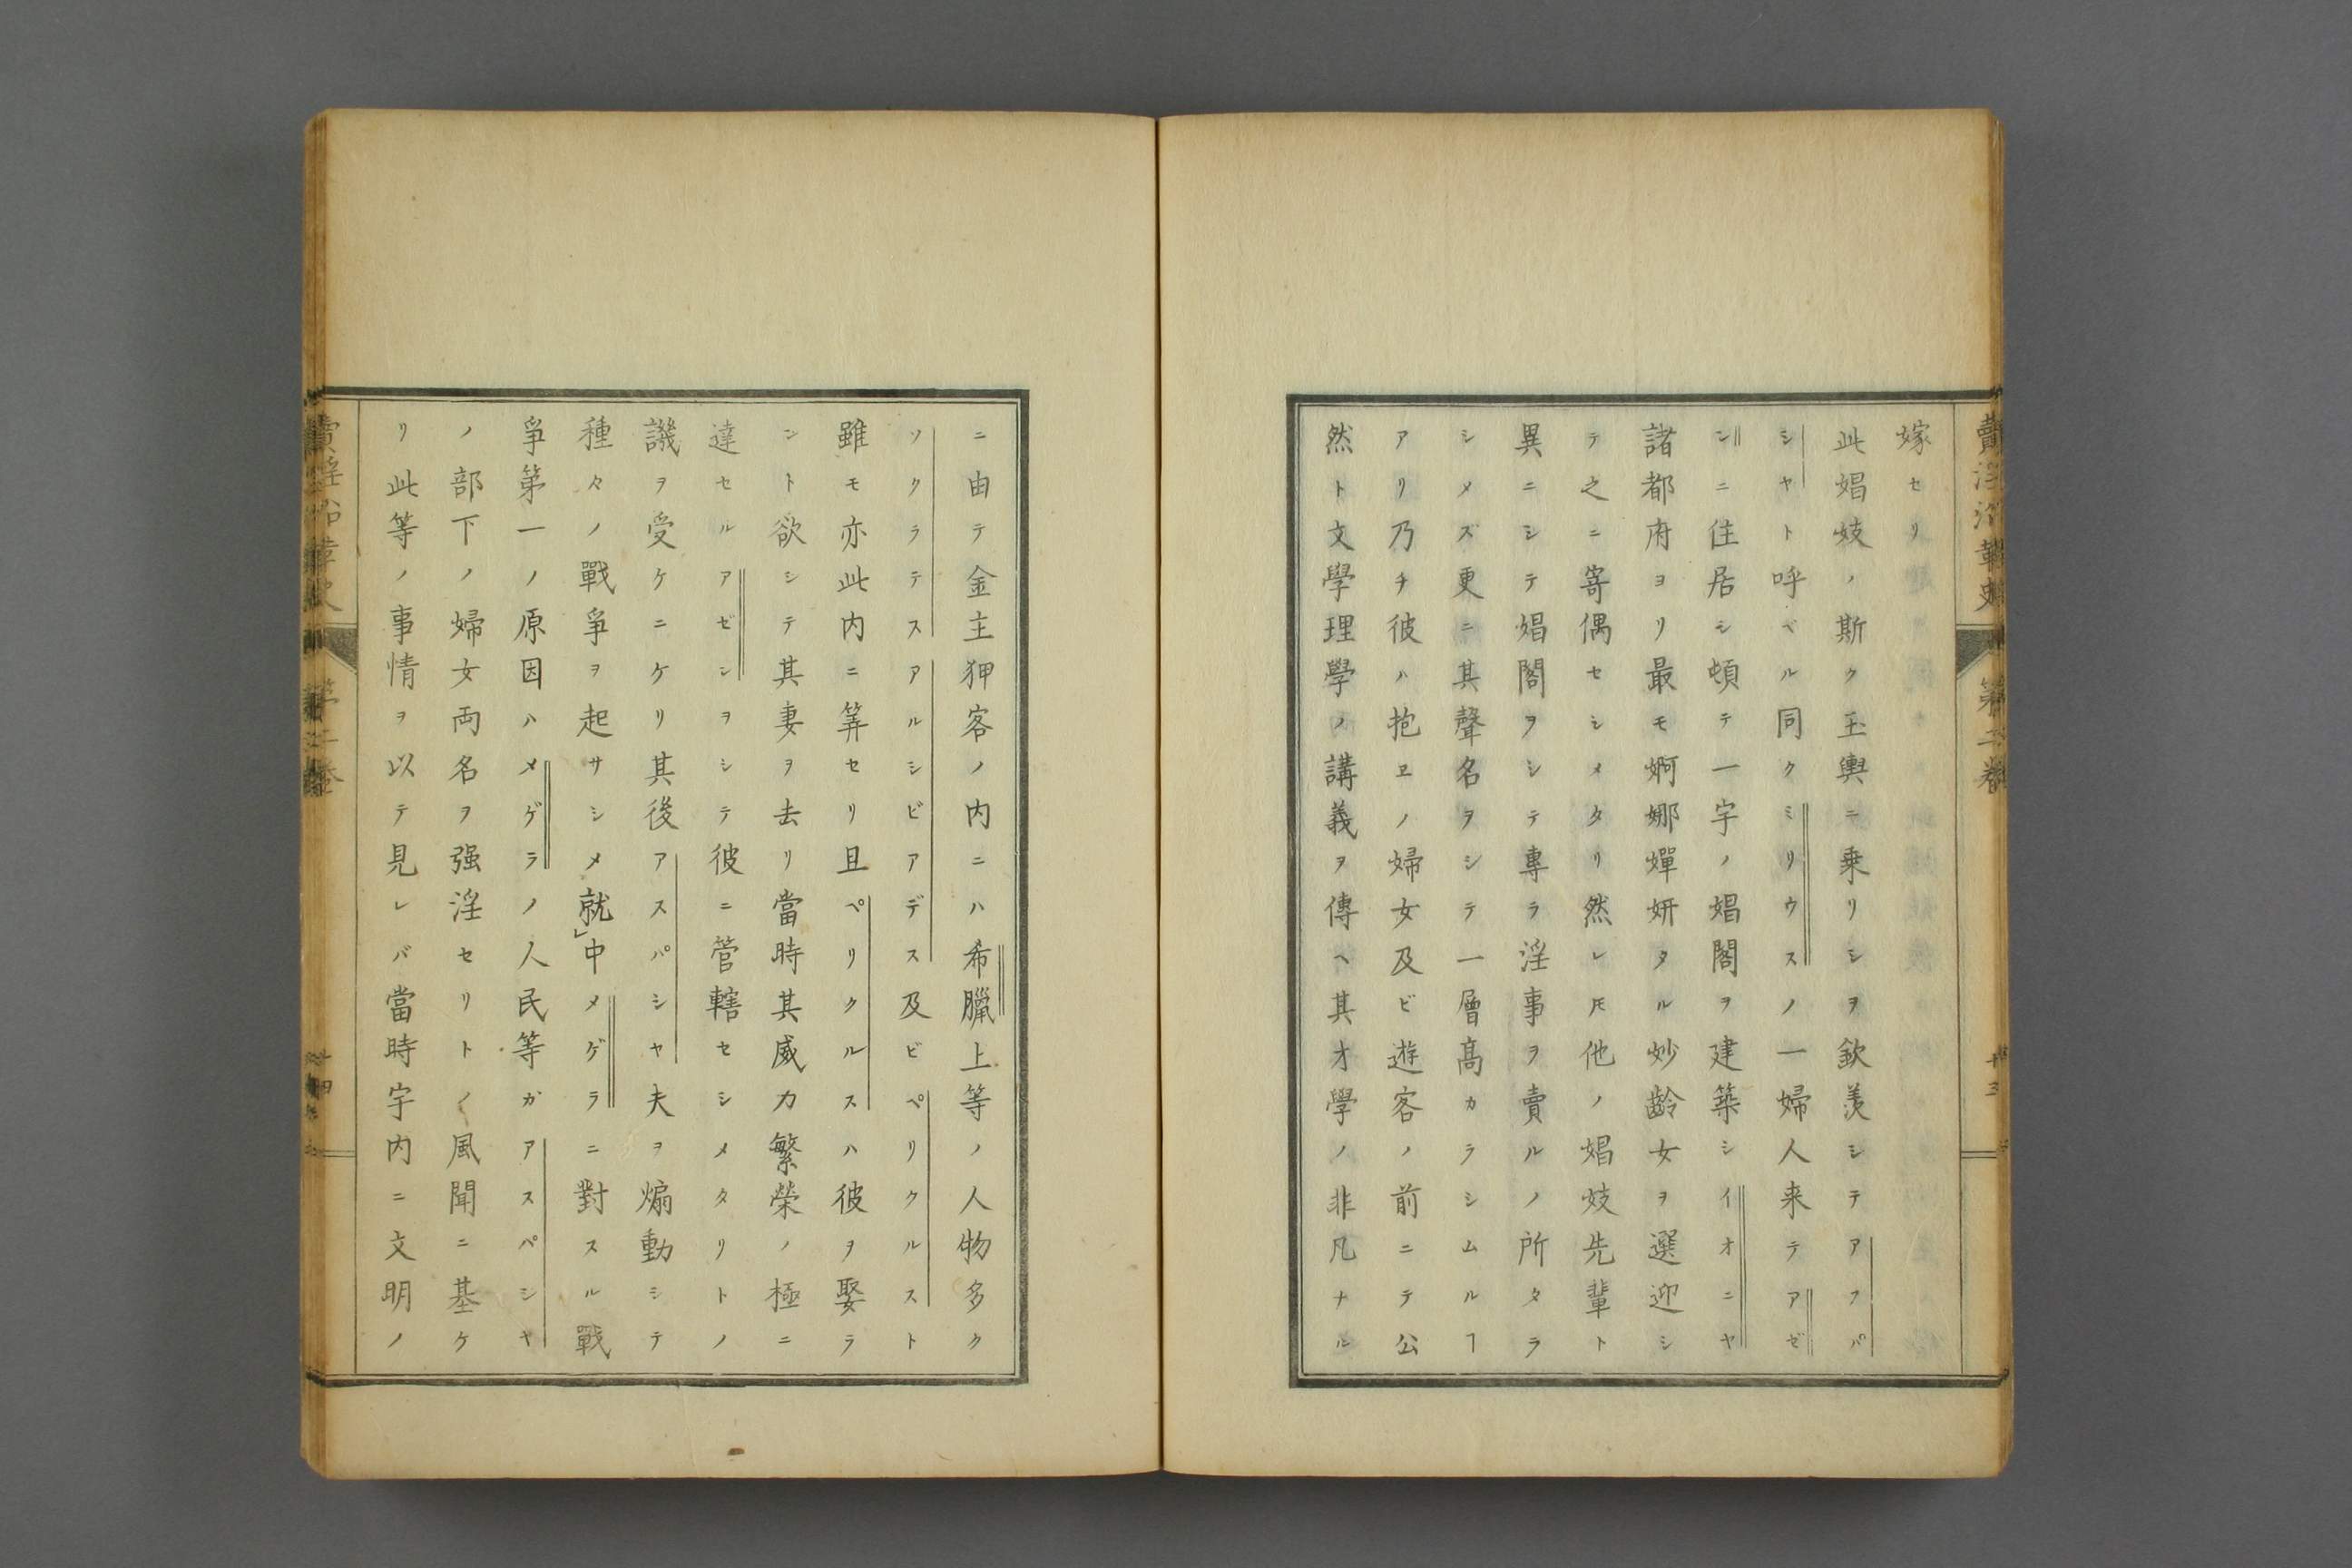 賣淫沿革史 第二巻 十三
嫁セリ
此娼妓ノ斯ク玉輿ニ乗リシヲ欽羨シテアスパ
シヤト呼ベル同クミリウスノ一婦人来テアゼ
ンニ住居シ頓テ一宇ノ娼閣ヲ建築シイオニヤ
諸都府ヨリ最モ婀娜嬋妍タル妙齢女ヲ選迎シ
テ之ニ寄偶セシメタリ然レ𪜈他ノ娼妓先輩ト
異ニシテ娼閣ヲシテ專ラ淫事ヲ賣ルノ所タラ
シメズ更ニ其聲名ヲシテ一層髙カラシムルヿ
アリ乃チ彼ハ抱ヱノ婦女及ビ遊客ノ前ニテ公
然ト文學理學ノ講義ヲ傳ヘ其才學ノ非凡ナル
ニ由テ金主狎客ノ内ニハ希臘上等ノ人物多ク
ソクラテスアルシビアデス及ビペリクルスト
雖モ亦此内ニ筭セリ且ペリクルスハ彼ヲ娶ラ
ント欲シテ其妻ヲ去リ當時其威力繁榮ノ極ニ
達セルアゼンヲシテ彼ニ管轄セシメタリトノ
譏ヲ受ケニケリ其後アスパシヤ夫ヲ煽動シテ
種々ノ戰爭ヲ起サシメ就」中メゲラニ對スル戰
爭第一ノ原因ハメゲラノ人民等ガアスペシヤ
ノ部下ノ婦女両名ヲ强淫セリトノ風聞ニ基ケ
リ此等ノ事情ヲ以テ見レバ當時宇内ニ文明ノ